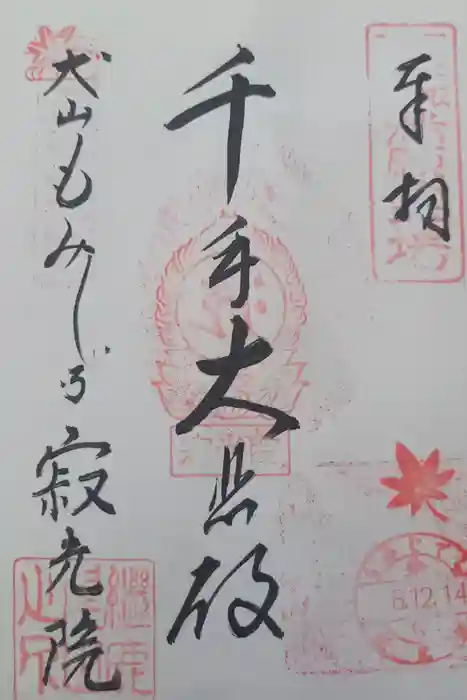 奉拝
千手大悲殿
犬山もみじでら寂光院
8.12.14